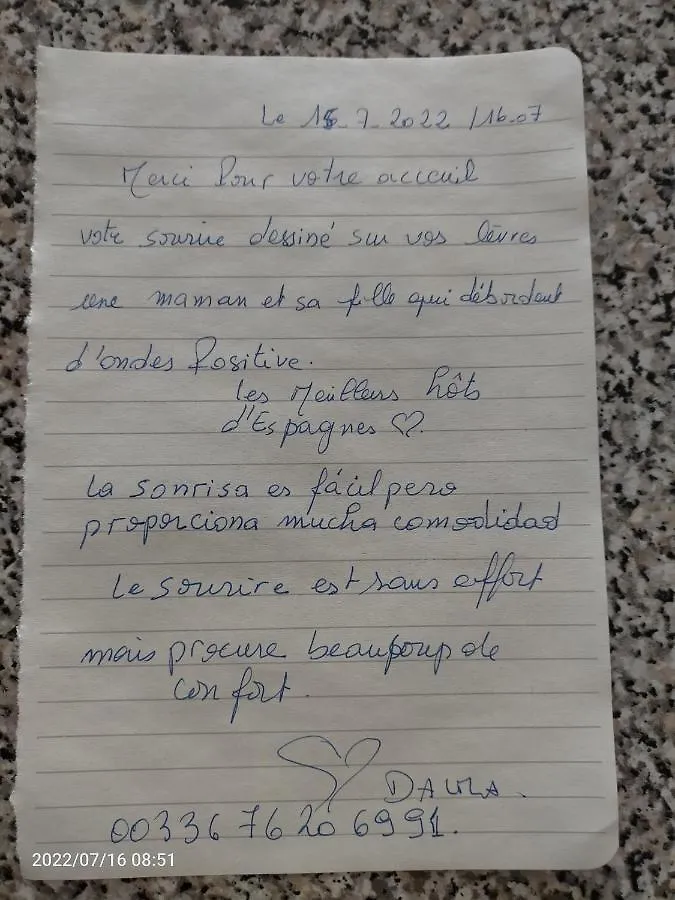 Le 15-7-2022 /16.07
Merci Pour votre acceuil
votre sourire dessiné sur vos lèvres
une maman et sa fille qui débordent
d'ondes Positive.
les Meilleurs hôts
d'Espagnes ♡.
La sonrisa es fácil pero
proporciona mucha comodidad
Le sourire est sans effort
mais procure beaucoup de
confort.
♡ DAURA.
0033676206991.
2022/07/16 08:51